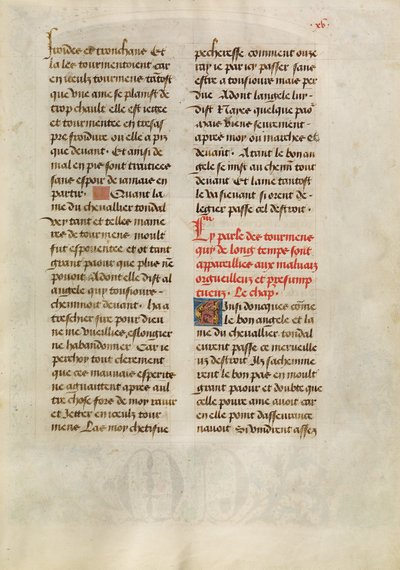 .xv.
froides et tronchans Et
la les tourmentoient car
en iceulx tourmens tatost
que une ame se plaindist de
trop chault elle est iettee
et tourmentee en tresas
pre froidure ou elle a pis
que deuant. Et ainsi de
mal en pis sont traitiees
sans espoir de iamais en
partir. Quant la
me du cheuallier tondal
vey tant et telles manie
res de tourmens moult
fut espouentee et ot tant
grant paour que plus ne
pouoit Adont elle dist al
angele qui tousiours
cheminoit deuant. ha a
treschier sire pour dieu
ne me vueillies eslongier
ne habandonner Car ie
perchoy tout clerement
que ces mauuais esperits
ne aguaittent apres aul
tre chose fors de moy rauir
et Jetter en iceulx tour
mens Las moy chetifue
pecheresse comment ose
ray ie par icy passer sans
estre a tousiours mais per
due Adont langele luy
dist N'ayes quelque paour
mais viens seurement
apres moy ou marches
deuant. Atant le bon an
gele se mist au chemin tout
deuant Et lame tantost
le va sieuant si orent de
legier passe cel destroit.
Cy parle des tourmens
qui de long temps sont
appareillies aux mauuais
orgueilleux et presump
tueux. Le chap.
Ainsi doncques comme
le bon angele et la
me du cheuallier tondal
eurent passe ce merueille
ux destroit Ilz sachemine
rent le bon pas en moult
grant paour et doubte que
celle poure ame auoit car
en elle point dasseurance
nauoit Si vindrent asses